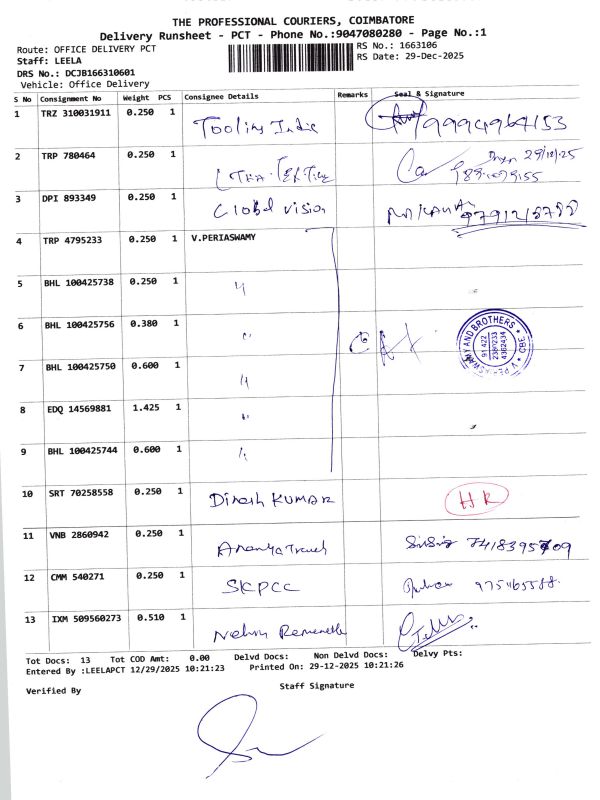 THE PROFESSIONAL COURIERS, COIMBATORE
Delivery Runsheet - PCT - Phone No.:9047080280 - Page No.:1
Route: OFFICE DELIVERY PCT
RS No.: 1663106
Staff: LEELA
RS Date: 29-Dec-2025
DRS No.: DCJB166310601
Vehicle: Office Delivery
S No Consignment No Weight PCS Consignee Details Remarks Seal & Signature
1 TRZ 310031911 0.250 1 Tooling India
2 TRP 780464 0.250 1 29/12/25
3 DPI 893349 0.250 1 Global vision
4 TRP 4795233 0.250 1 V.PERIASWAMY
5 BHL 100425738 0.250 1 "
6 BHL 100425756 0.380 1 " AND BROTHERS CBE 91422 2380233 4362434
7 BHL 100425750 0.600 1 "
8 EDQ 14569881 1.425 1 "
9 BHL 100425744 0.600 1 "
10 SRT 70258558 0.250 1 Dinesh KUMAR HR
11 VNB 2860942 0.250 1 Ananya Travels
12 CMM 540271 0.250 1 SKPCC
13 IXM 509560273 0.510 1 Nehru
Tot Docs: 13 Tot COD Amt: 0.00 Delvd Docs: Non Delvd Docs: Delvy Pts:
Entered By :LEELAPCT 12/29/2025 10:21:23 Printed On: 29-12-2025 10:21:26
Verified By
Staff Signature